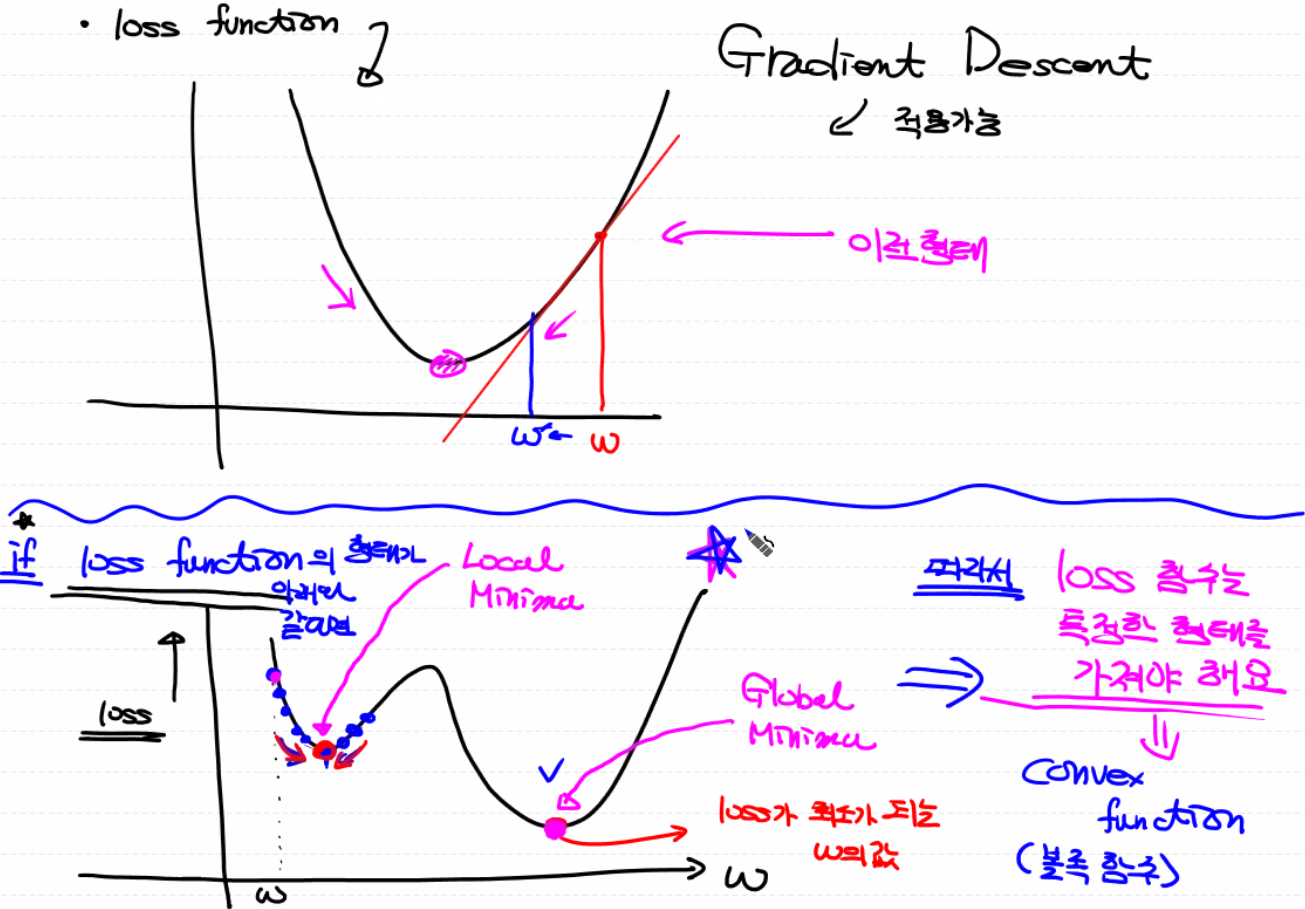 • loss function
Gradient Descent
적용가능
이런 형태
w' ← w
if loss function의 형태가
아래와
같으면
Local
Minima
loss
Global
Minima
loss가 최소가 되는
w의 값
w
w
따라서 loss 함수는
특정한 형태를
가져야 해요
Convex
function
(볼록 함수)